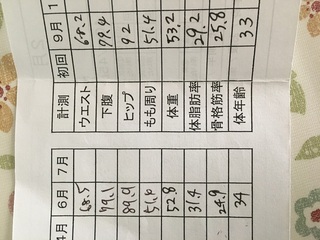 計測 初回 9月1
ウエスト 68.2
下腹 79.4
ヒップ 92
もも周り 51.4
体重 53.2
体脂肪率 29.2
骨格筋率 25.8
体年齢 33
4月 6月 7月
68.5
79.1
89.9
51.6
52.8
31.4
24.9
34